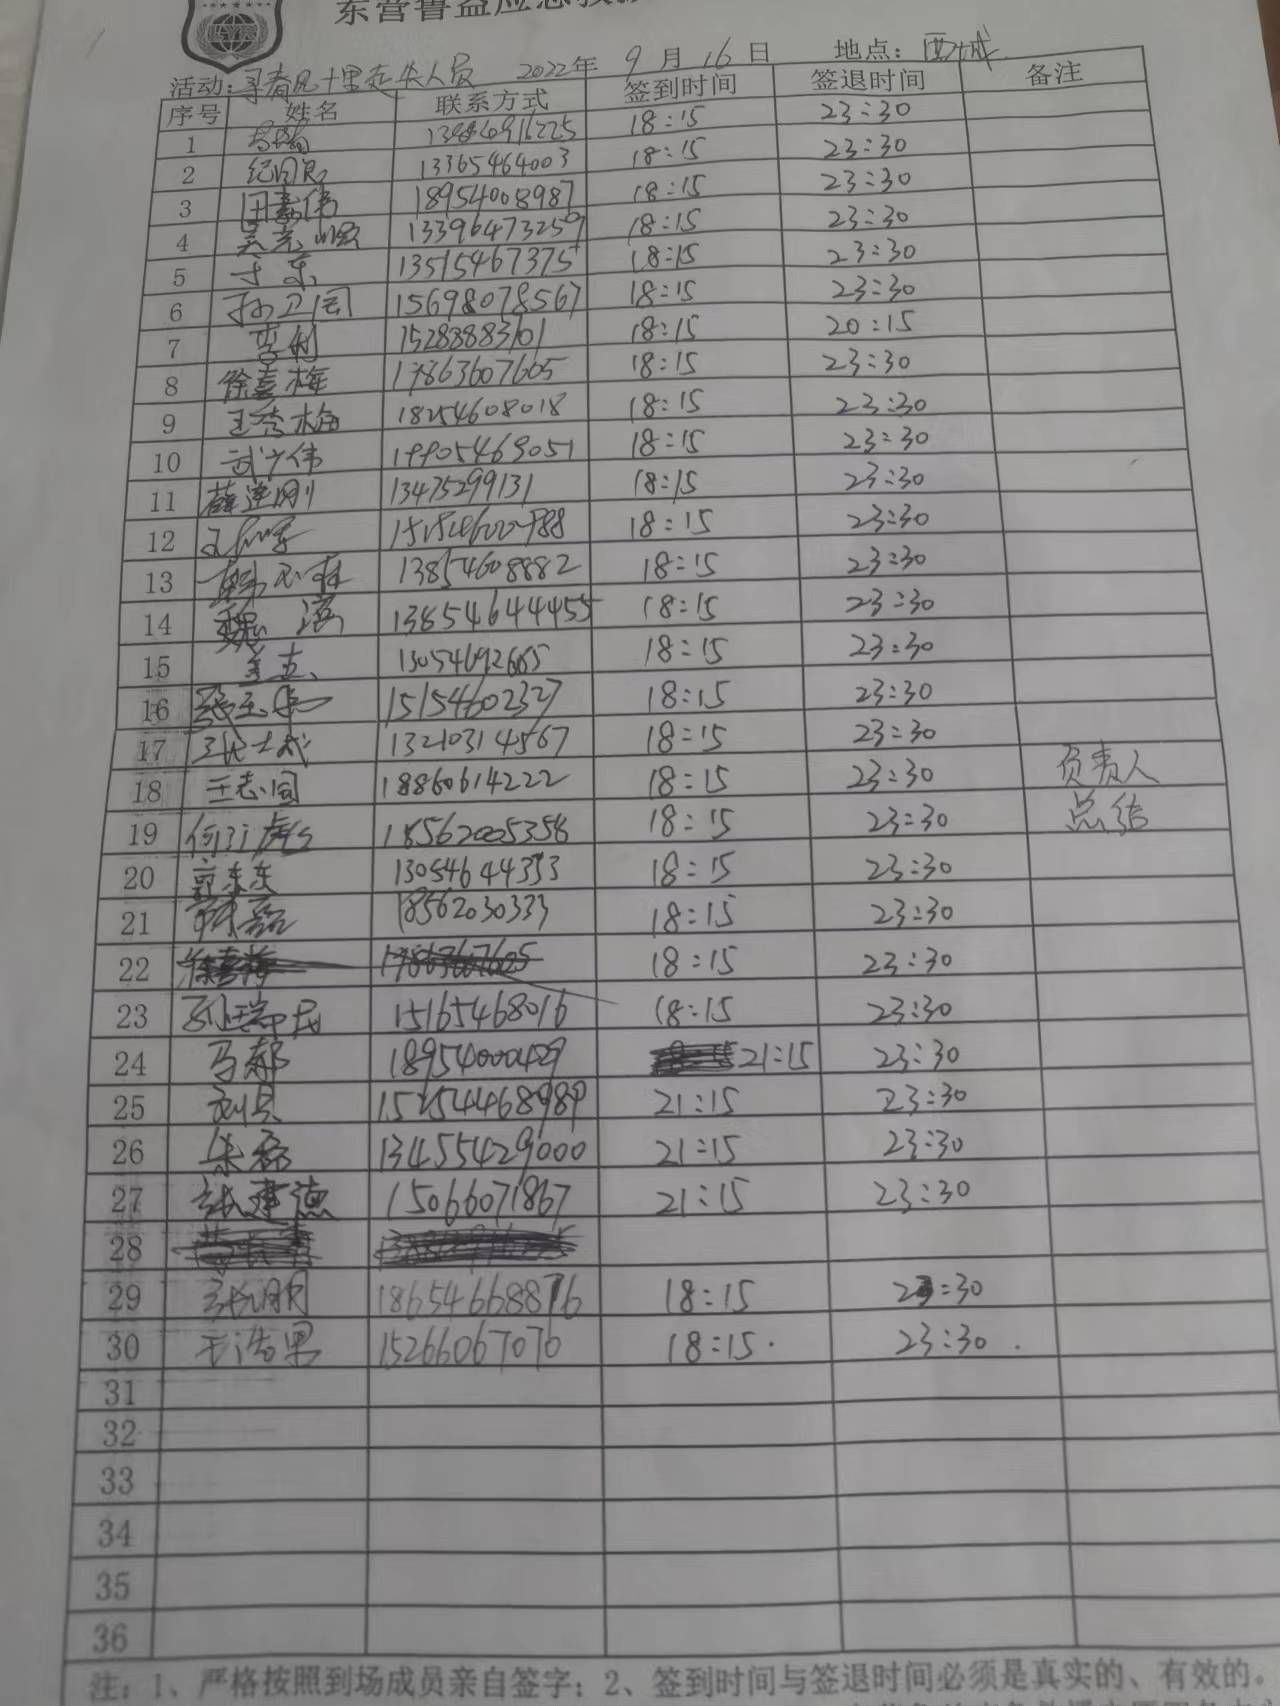 东营鲁益应急救
活动：寻春风十里走失人员 2022年 9 月 16 日 地点：西城
序号 姓名 联系方式 签到时间 签退时间 备注
1 18:15 23:30
2 13365464003 18:15 23:30
3 田嘉伟 18954008987 18:15 23:30
4 13396473259 18:15 23:30
5 于东 13515467375 18:15 23:30
6 孙卫国 15698078567 18:15 23:30
7 李利 15288883101 18:15 20:15
8 徐喜梅 17863607605 18:15 23:30
9 王秀梅 18254608018 18:15 23:30
10 武少伟 19905469051 18:15 23:30
11 薛莲刚 13475299131 18:15 23:30
12 18:15 23:30
13 13854608882 18:15 23:30
14 13854644455 18:15 23:30
15 13054692665 18:15 23:30
16 15154602327 18:15 23:30
17 张士成 13210314567 18:15 23:30
18 王志国 18860614222 18:15 23:30 负责人
19 18562005358 18:15 23:30 总结
20 郭东东 13054644333 18:15 23:30
21 韩磊 18562030333 18:15 23:30
22 徐喜梅 17863607605 18:15 23:30
23 15165468016 18:15 23:30
24 马郝 18954000429 21:15 23:30
25 21:15 23:30
26 朱磊 13455429000 21:15 23:30
27 张建德 15066071867 21:15 23:30
28
29 张朋 18654668876 18:15 23:30
30 15266067070 18:15. 23:30.
31
32
33
34
35
36
注：1、严格按照到场成员亲自签字；2、签到时间与签退时间必须是真实的、有效的。